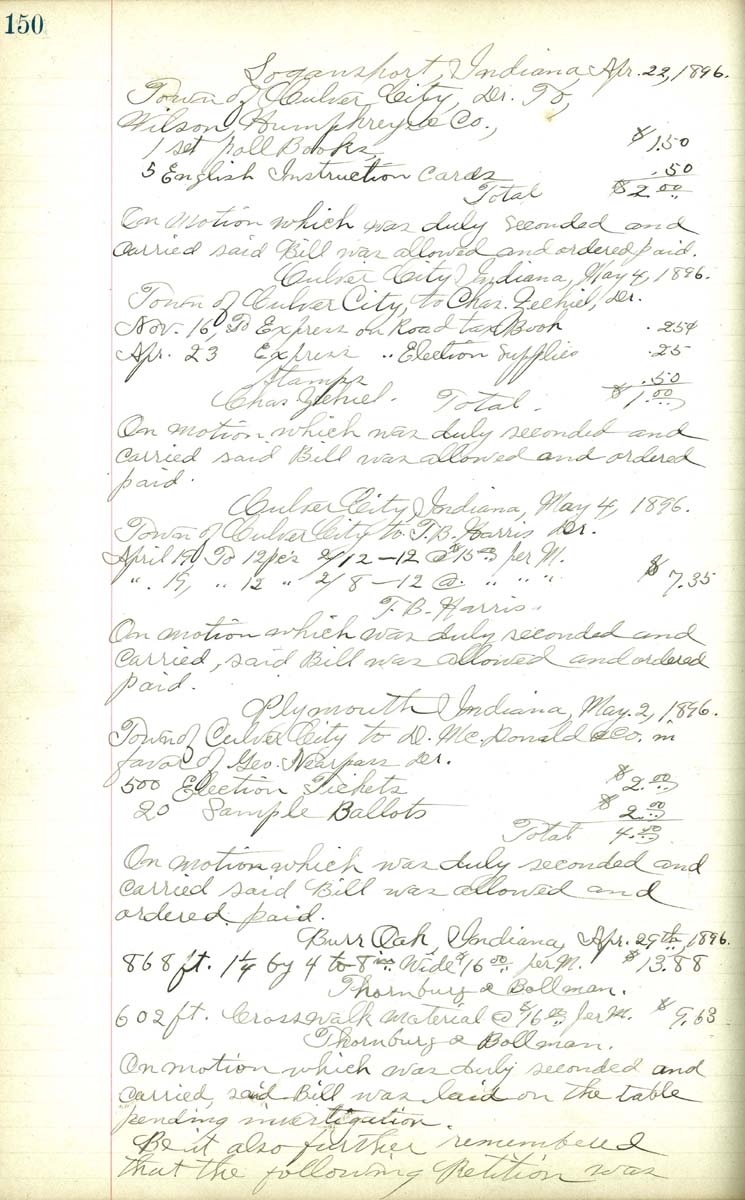 150
Logansport, Indiana, Apr. 22, 1896.
Town of Culver City, Dr. To,
Wilson, Humphreys & Co.,
1 set poll Books, $1.50
5 English Instruction Cards .50
Total $2.00
On motion which was duly seconded and
carried said Bill was allowed and ordered paid.
Culver City, Indiana, May 4, 1896.
Town of Culver City, to Chas. Zechiel, Dr.
Nov. 16, To Express on Road tax Book .25¢
Apr. 23 Express " Election Supplies .25
Stamps .50
Chas Zechiel. Total. $1.00
On motion which was duly seconded and
carried said Bill was allowed and ordered
paid.
Culver City, Indiana, May 4, 1896.
Town of Culver City to T. B. Harris Dr.
April 19, To 12 pc's 2/12-12 @ $15.00 per M.
". 19, " 12 " 2/8-12 @. " " " $7.35
T. B. Harris.
On motion which was duly seconded and
carried, said Bill was allowed and ordered
paid.
Plymouth, Indiana, May. 2, 1896.
Town of Culver City to D. McDonald & Co. in
favor of Geo. Nearpass Dr.
500 Election Tickets $2.00
20 Sample Ballots $2.00
Total 4.00
On motion which was duly seconded and
carried said Bill was allowed and
ordered paid.
Burr Oak, Indiana, Apr. 29th, 1896.
868 ft. 1¼ by 4 to 8 in. Wide $16.00 per M. $13.88
Thornburg & Bollman.
602 ft. Crosswalk material @ $16.00 per M. $9.63
Thornburg & Bollman.
On motion which was duly seconded and
carried, said Bill was laid on the table
pending investigation.
Be it also further remembered
that the following Petition was